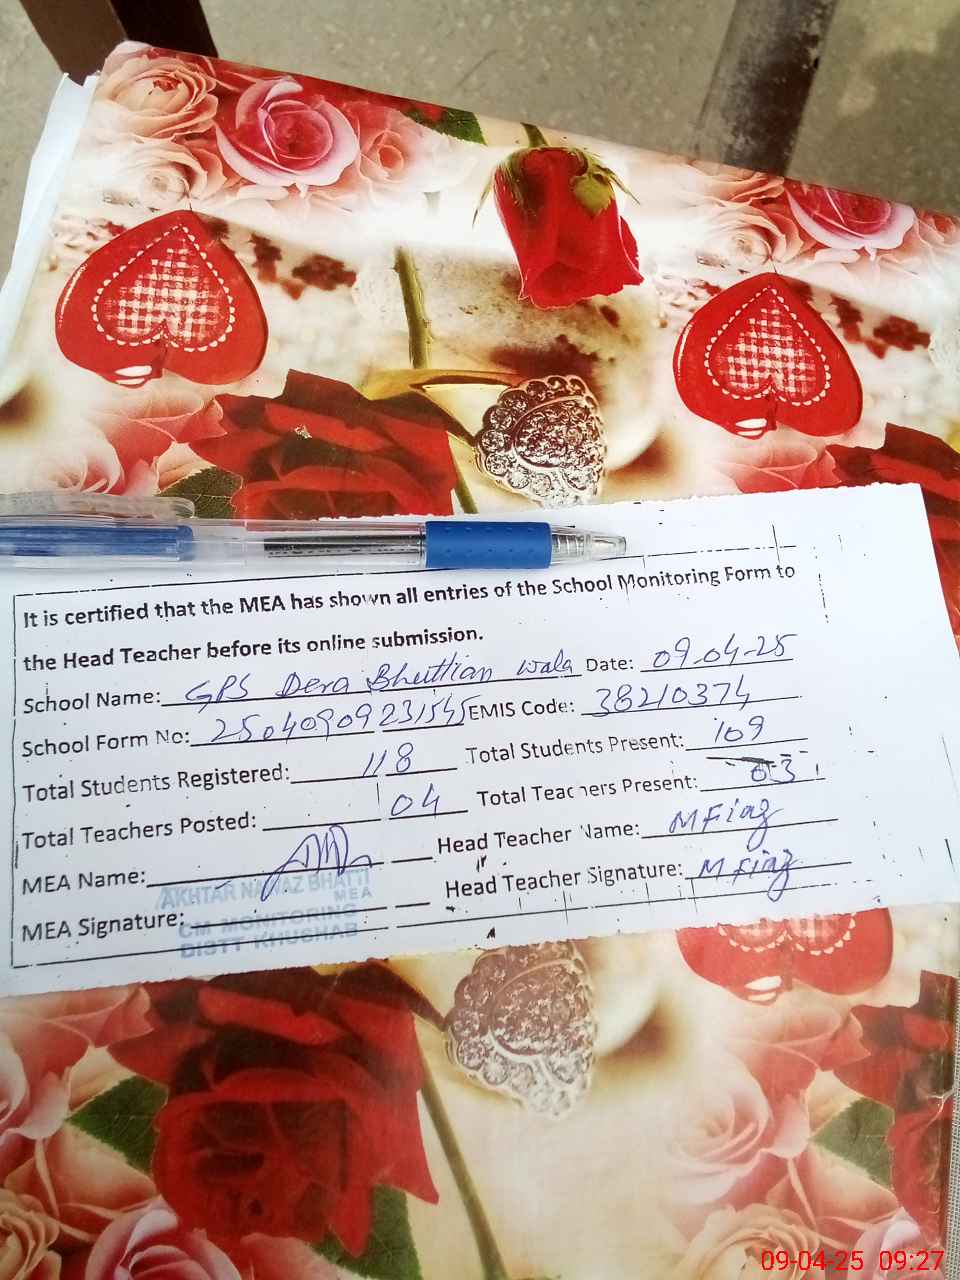 It is certified that the MEA has shown all entries of the School Monitoring Form to
the Head Teacher before its online submission.
School Name: GPS Dera Bhuttian wala Date: 09-04-25
School Form No: 25040909231545 EMIS Code: 38210374
Total Students Registered: 118 Total Students Present: 109
Total Teachers Posted: 04 Total Teachers Present: 03
MEA Name: Head Teacher Name: M Fiaz
AKHTAR NAWAZ BHATTI
MEA
MEA Signature: Head Teacher Signature: M Fiaz
CM MONITORING
DISTT KHUSHAB
09-04-25 09:27